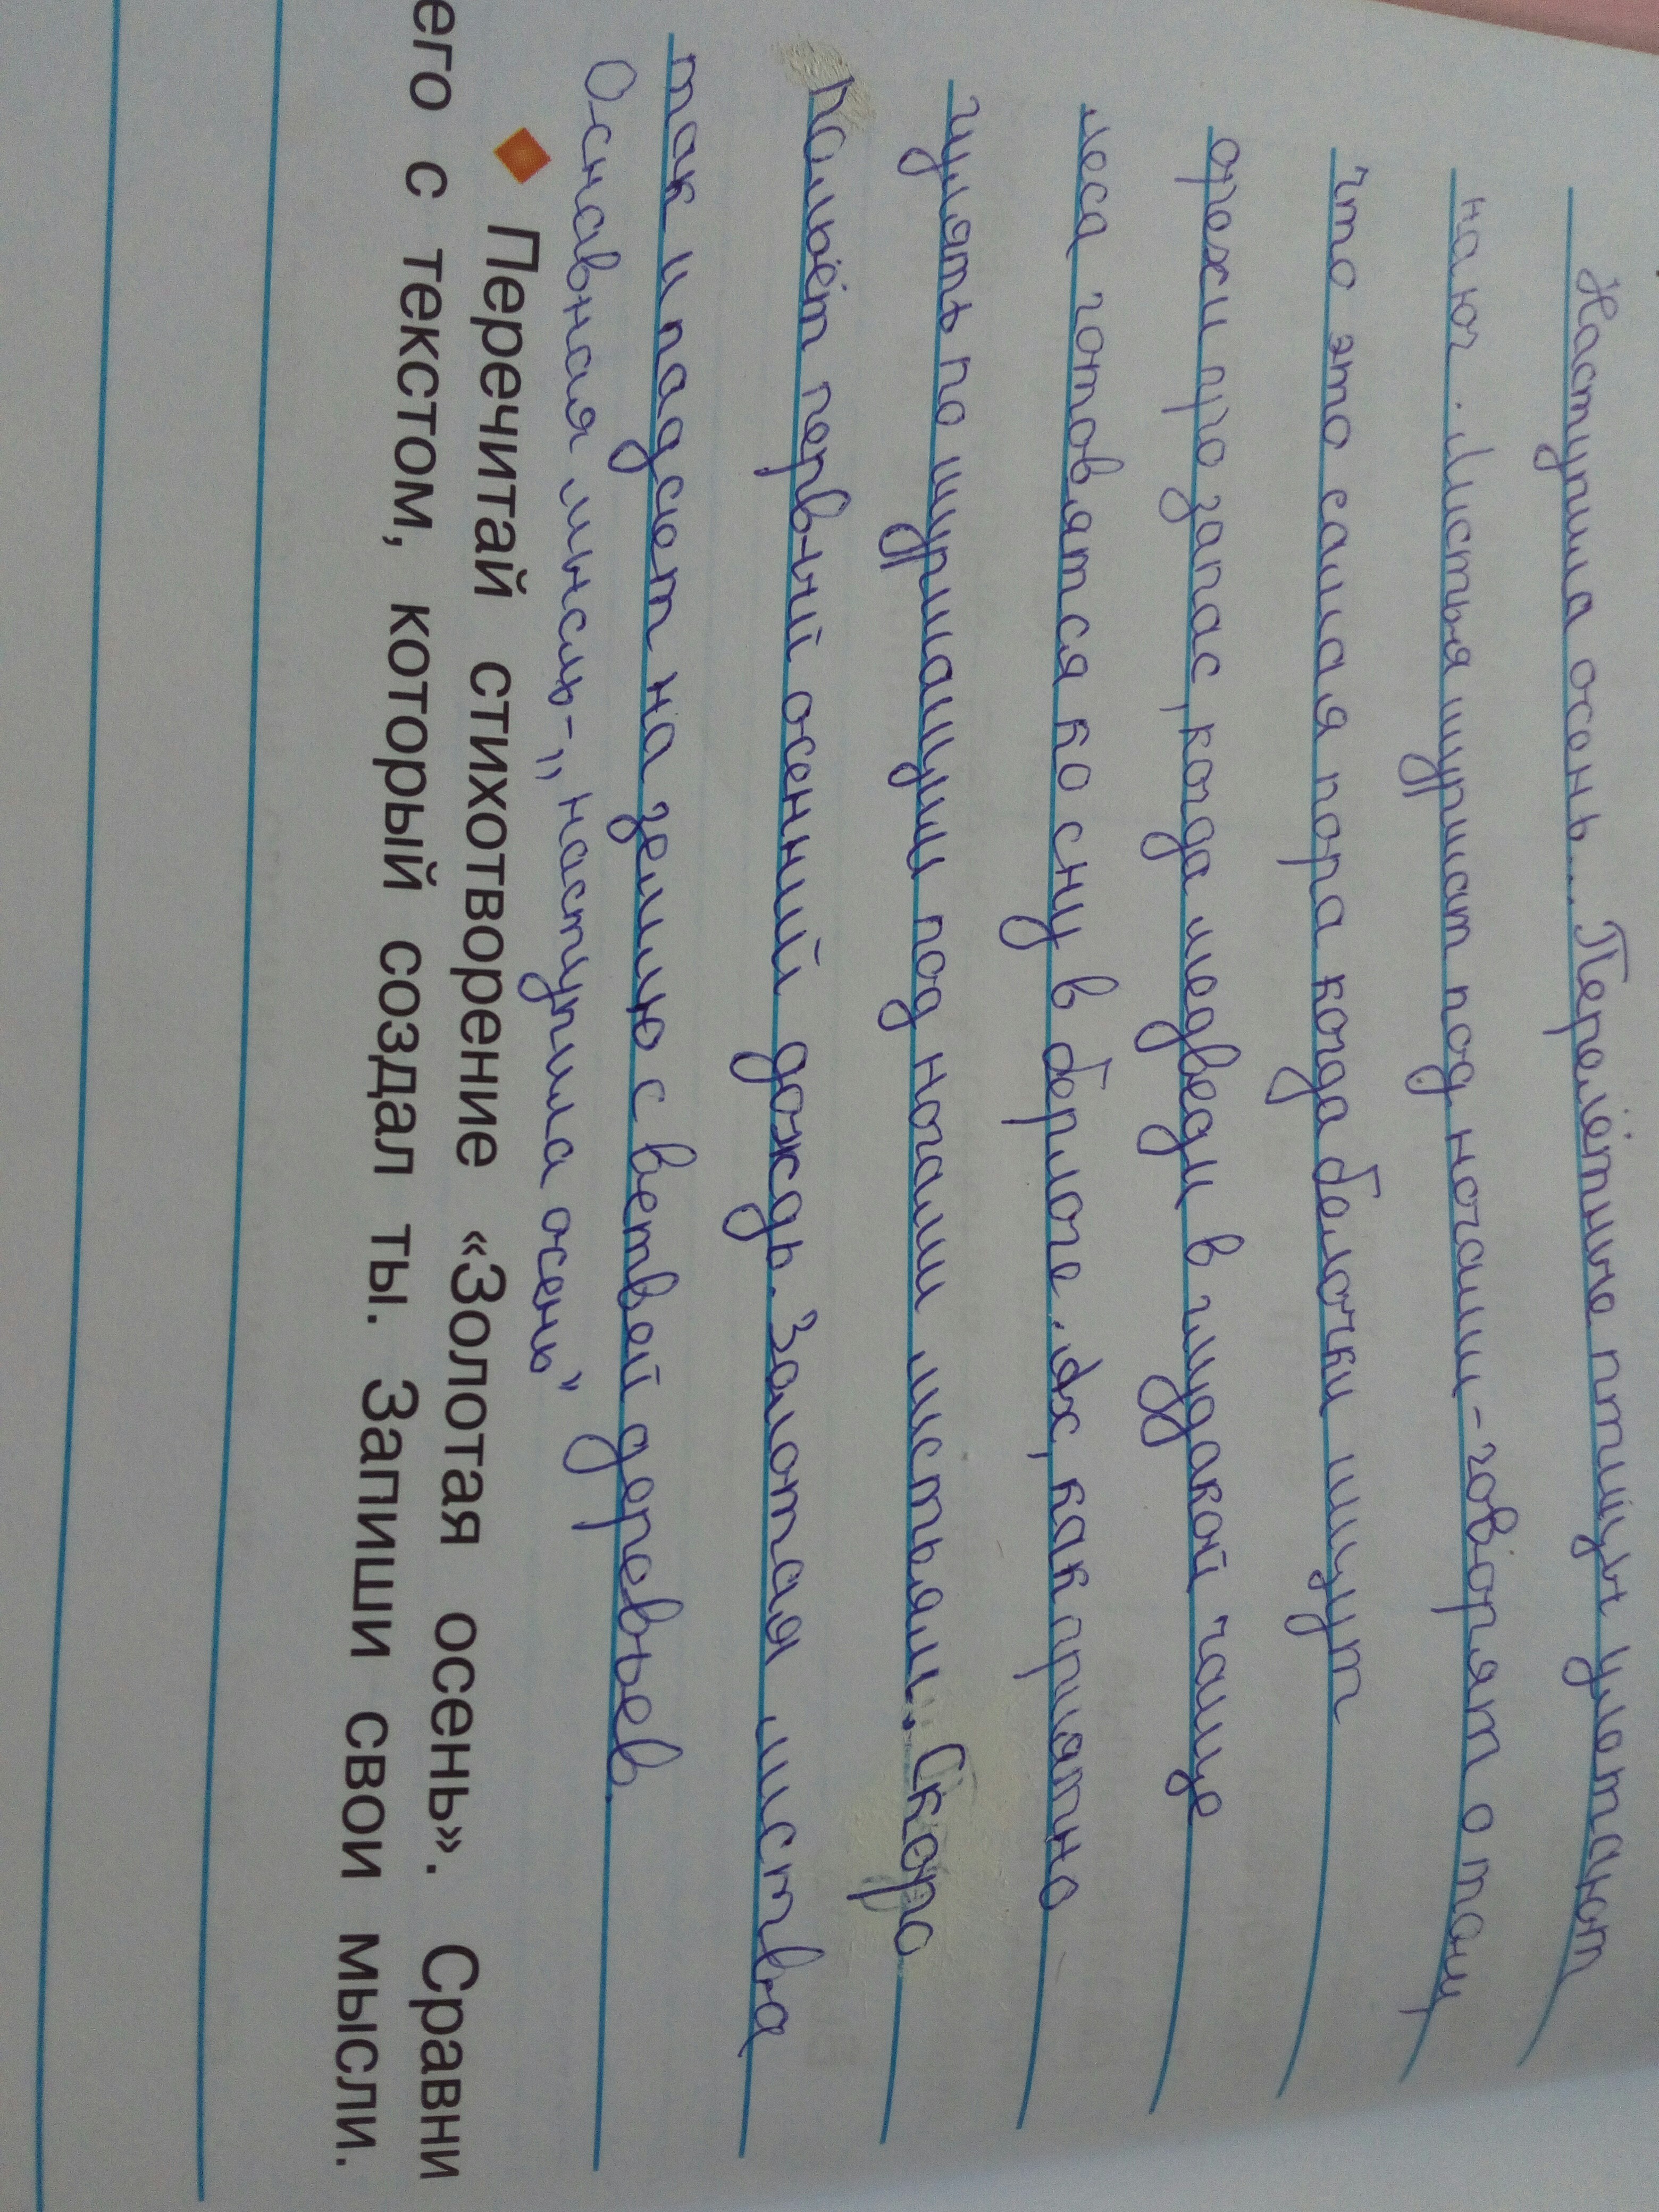 Наступила осень... Перелётные птицы улетают
на юг. Листья шуршат под ногами - говорят о том,
что это самая пора когда белочки ищут
орехи про запас, когда медведи в глудакой чаще
леса готовятся ко сну в берлоге. Ах, как приятно
гулять по шуршащим под ногами листьям. Скоро
польёт первый осенний дождь. Золотая листва
так и падает на землю с ветвей деревьев.
Основная мысль - „наступила осень"
Перечитай стихотворение «Золотая осень». Сравни
его с текстом, который создал ты. Запиши свои мысли.